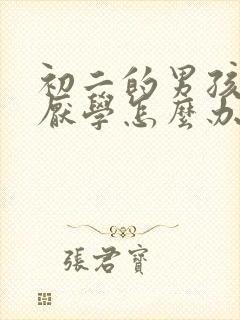 初二的男孩
厭學怎麼办
張君寶